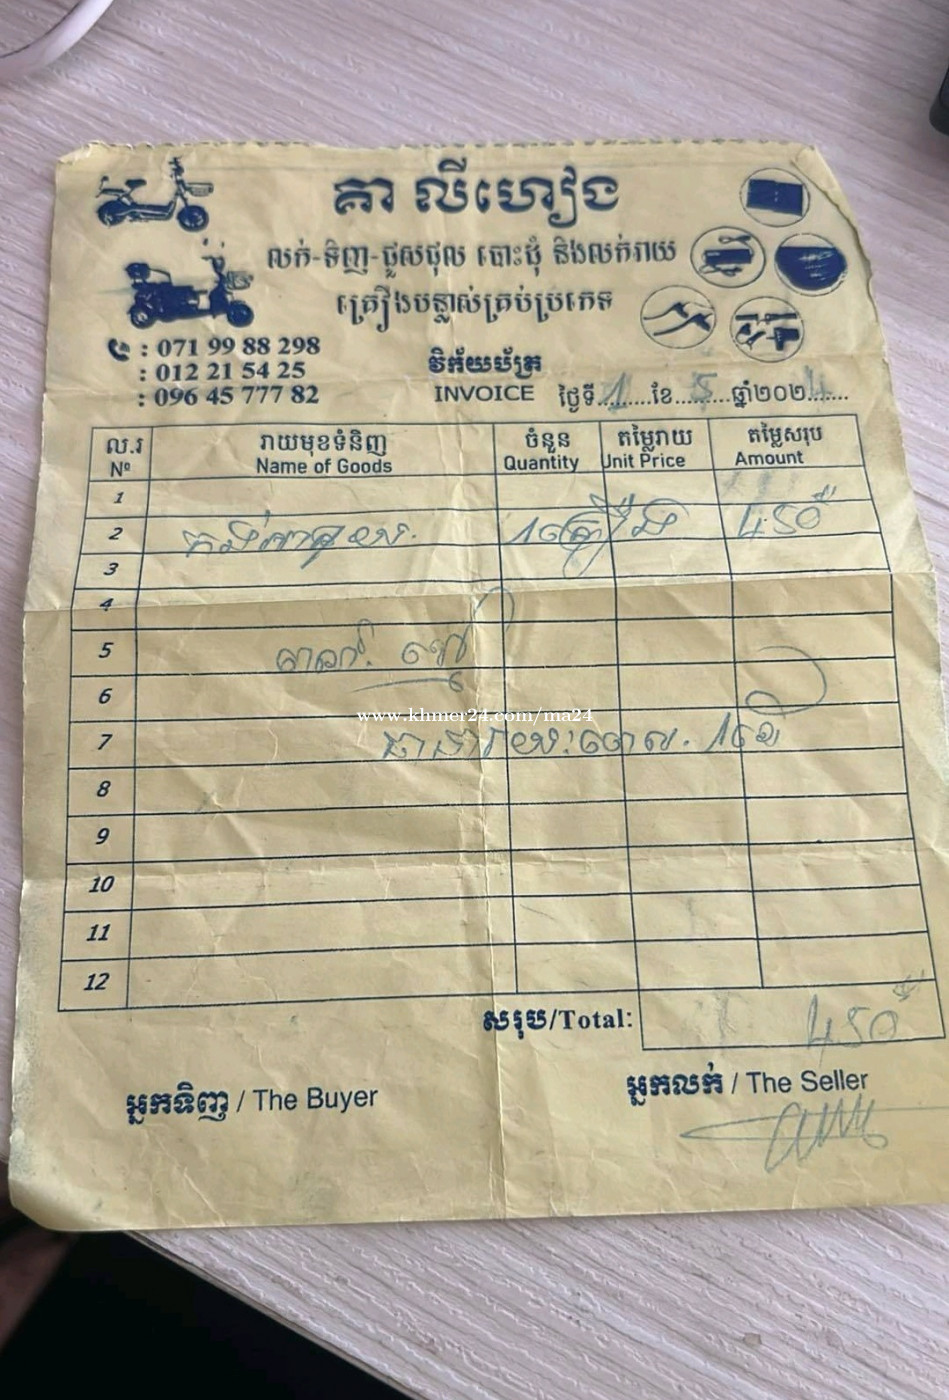 គា លីហៀង
លក់-ទិញ-ជួសជុល បោះដុំ និងលក់រាយ
គ្រឿងបន្លាស់គ្រប់ប្រភេទ
: 071 99 88 298
: 012 21 54 25
: 096 45 777 82
វិក័យប័ត្រ
INVOICE ថ្ងៃទី...1...ខែ...5...ឆ្នាំ២០២4......
ល.រ រាយមុខទំនិញ ចំនួន តម្លៃរាយ តម្លៃសរុប
Nº Name of Goods Quantity Unit Price Amount
1
2 កង់ 1គ្រឿង 450$
3
4
5
6
www.khmer24.com/ma24
7 1ខែ
8
9
10
11
12
សរុប/Total: 450$
អ្នកទិញ / The Buyer អ្នកលក់ / The Seller